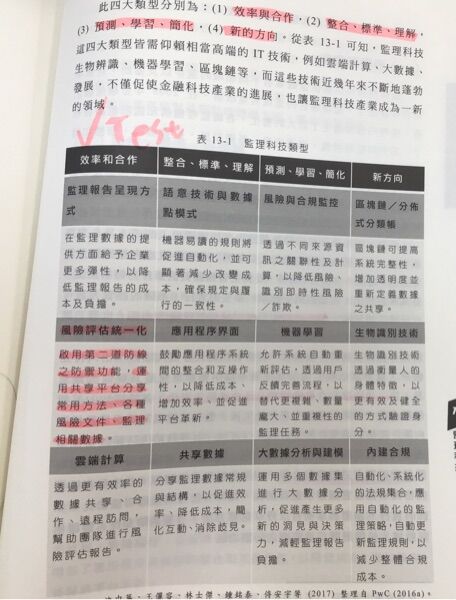 此四大類型分別為：(1) 效率與合作，(2) 整合、標準、理解，
(3) 預測、學習、簡化，(4) 新的方向。從表 13-1 可知，監理科技
這四大類型皆需仰賴相當高端的 IT 技術，例如雲端計算、大數據、
生物辨識、機器學習、區塊鏈等，而這些技術近幾年來不斷地蓬勃
發展，不僅促使金融科技產業的進展，也讓監理科技產業成為一新
的領域。
√Test
表 13-1 監理科技類型
效率和合作 整合、標準、理解 預測、學習、簡化 新方向
監理報告呈現方式
語意技術與數據點模式
風險與合規監控
區塊鏈／分佈式分類帳
在監理數據的提供方面給予企業更多彈性，以降低監理報告的成本及負擔。
機器易讀的規則將促進自動化，並可顯著減少改變成本，確保規定與履行的一致性。
透過不同來源資訊之關聯性及計算，以降低風險、識別即時性風險／詐欺。
區塊鏈可提高系統完整性，增加透明度並重新定義數據之共享。
風險評估統一化 應用程序界面 機器學習 生物識別技術
啟用第二道防線之防禦功能，運用共享平台分享常用方法、各種風險文件、監理相關數據。
鼓勵應用程序系統間的整合和互操作性，以降低成本、增加效率，並促進平台革新。
允許系統自動重新評估，透過用戶反饋完善流程，以替代更複雜、數量龐大、並重複性的監理任務。
生物識別技術透過衡量人的身體特徵，以更有效及健全的方式驗證身分。
雲端計算 共享數據 大數據分析與建模 內建合規
透過更有效率的數據共享、合作、遠程訪問，幫助團隊進行風險評估報告。
分享監理數據常規與結構，以促進效率、降低成本，簡化互動、消除歧見。
運用多個數據集進行大數據分析，促進產生更多新的洞見與決策力，減輕監理報告負擔。
自動化、系統化的法規集合，應用自動化的監理策略，自動更新監理規則，以減少整體合規成本。
王儷容、林士傑、鍾銘泰、侍安宇等 (2017) 整理自 PwC (2016a)。